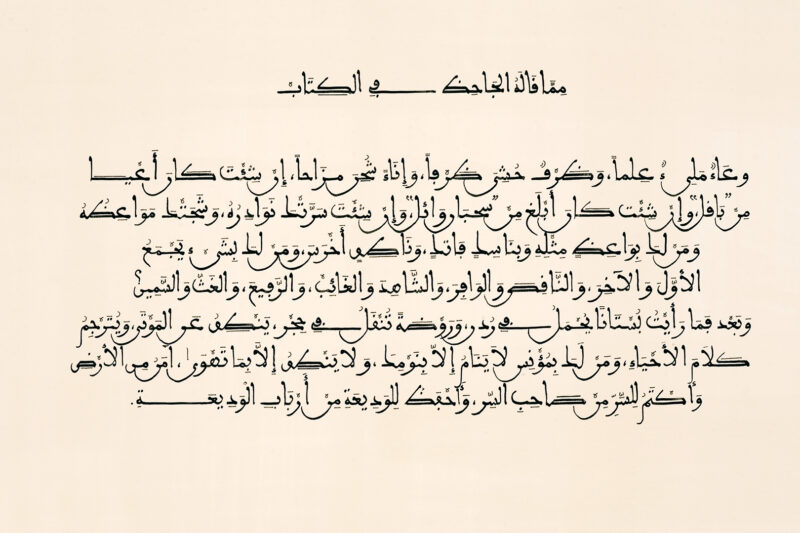 مِمَّا قَالَهُ الجَاحِظ في الكِتَاب
وعَاءٌ مَلِيءٌ عِلماً، وَظَرفٌ حُشِيَ ظَرفاً، وَإِنَاءٌ شُحِنَ مِزَاحاً، إِن شِئْتَ كانَ أَعْيَا
مِنْ "بَاقِل"، وَإِنْ شِئْتَ كانَ أَبْلَغَ مِنْ "سَحبَانِ وَائِل"، وَإِنْ شِئْتَ سَرَّتكَ نَوَادِرُهُ، وَشَجَتكَ مَوَاعِظُهُ
وَمَن لَكَ بِوَاعِظٍ مِثْلِهِ وَبِنَاسِكٍ فَاتِكٍ، وَنَاطِقٍ أَخْرَس، وَمَن لَكَ بِشَيءٍ يَجْمَعُ
الأوَّلَ وَالآخِرَ، وَالنَّاقِصَ وَالوَافِرَ، وَالشَّاهِدَ وَالغَائِبَ، وَالرَّفِيعَ، وَالغَثَّ وَالسَّمِينَ؟
وَبَعْد فَمَا رَأَيْتُ بُسْتَانًا يُحْمَلُ في رُدن، وَرَوْضَةً تُنْقَلُ في حِجْرٍ، يَنطِقُ عَنِ المَوْتَى، وَيُتَرْجِمُ
كَلَامَ الأَحْيَاءِ، وَمَن لَكَ بِمُؤْنِسٍ لَا يَنَامُ إِلَّا بِنَوْمِكَ، وَلَا يَنطِقُ إِلَّا بِمَا تَهْوَى، آمَنُ مِنَ الأَرْضِ
وَأَكتَمُ لِلسِّرِّ مِنْ صَاحِبِ السِّر، وَأَحْفَظُ لِلوَدِيعَةِ مِنْ أَرْبَابِ الوَدِيعَةِ.